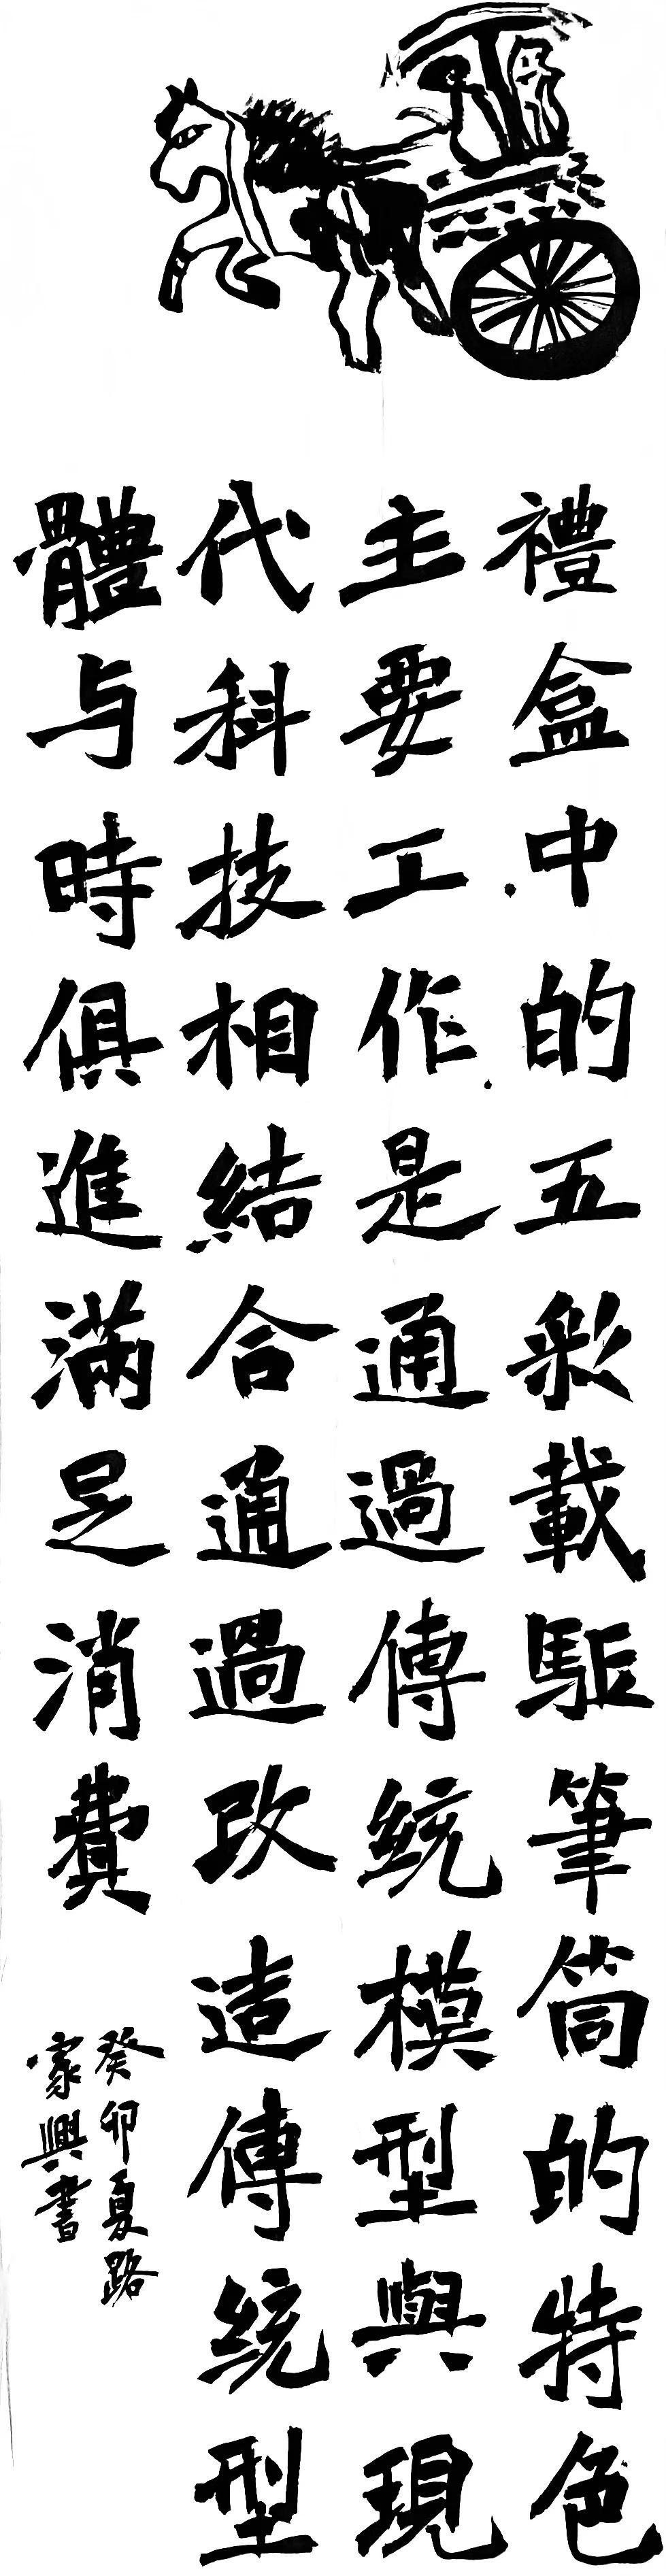 禮盒中的五彩載駏筆筒的特色
主要工作是通過傳統模型與現
代科技相結合通過改造傳統型
體与時俱進滿足消費
癸卯夏路
家興書